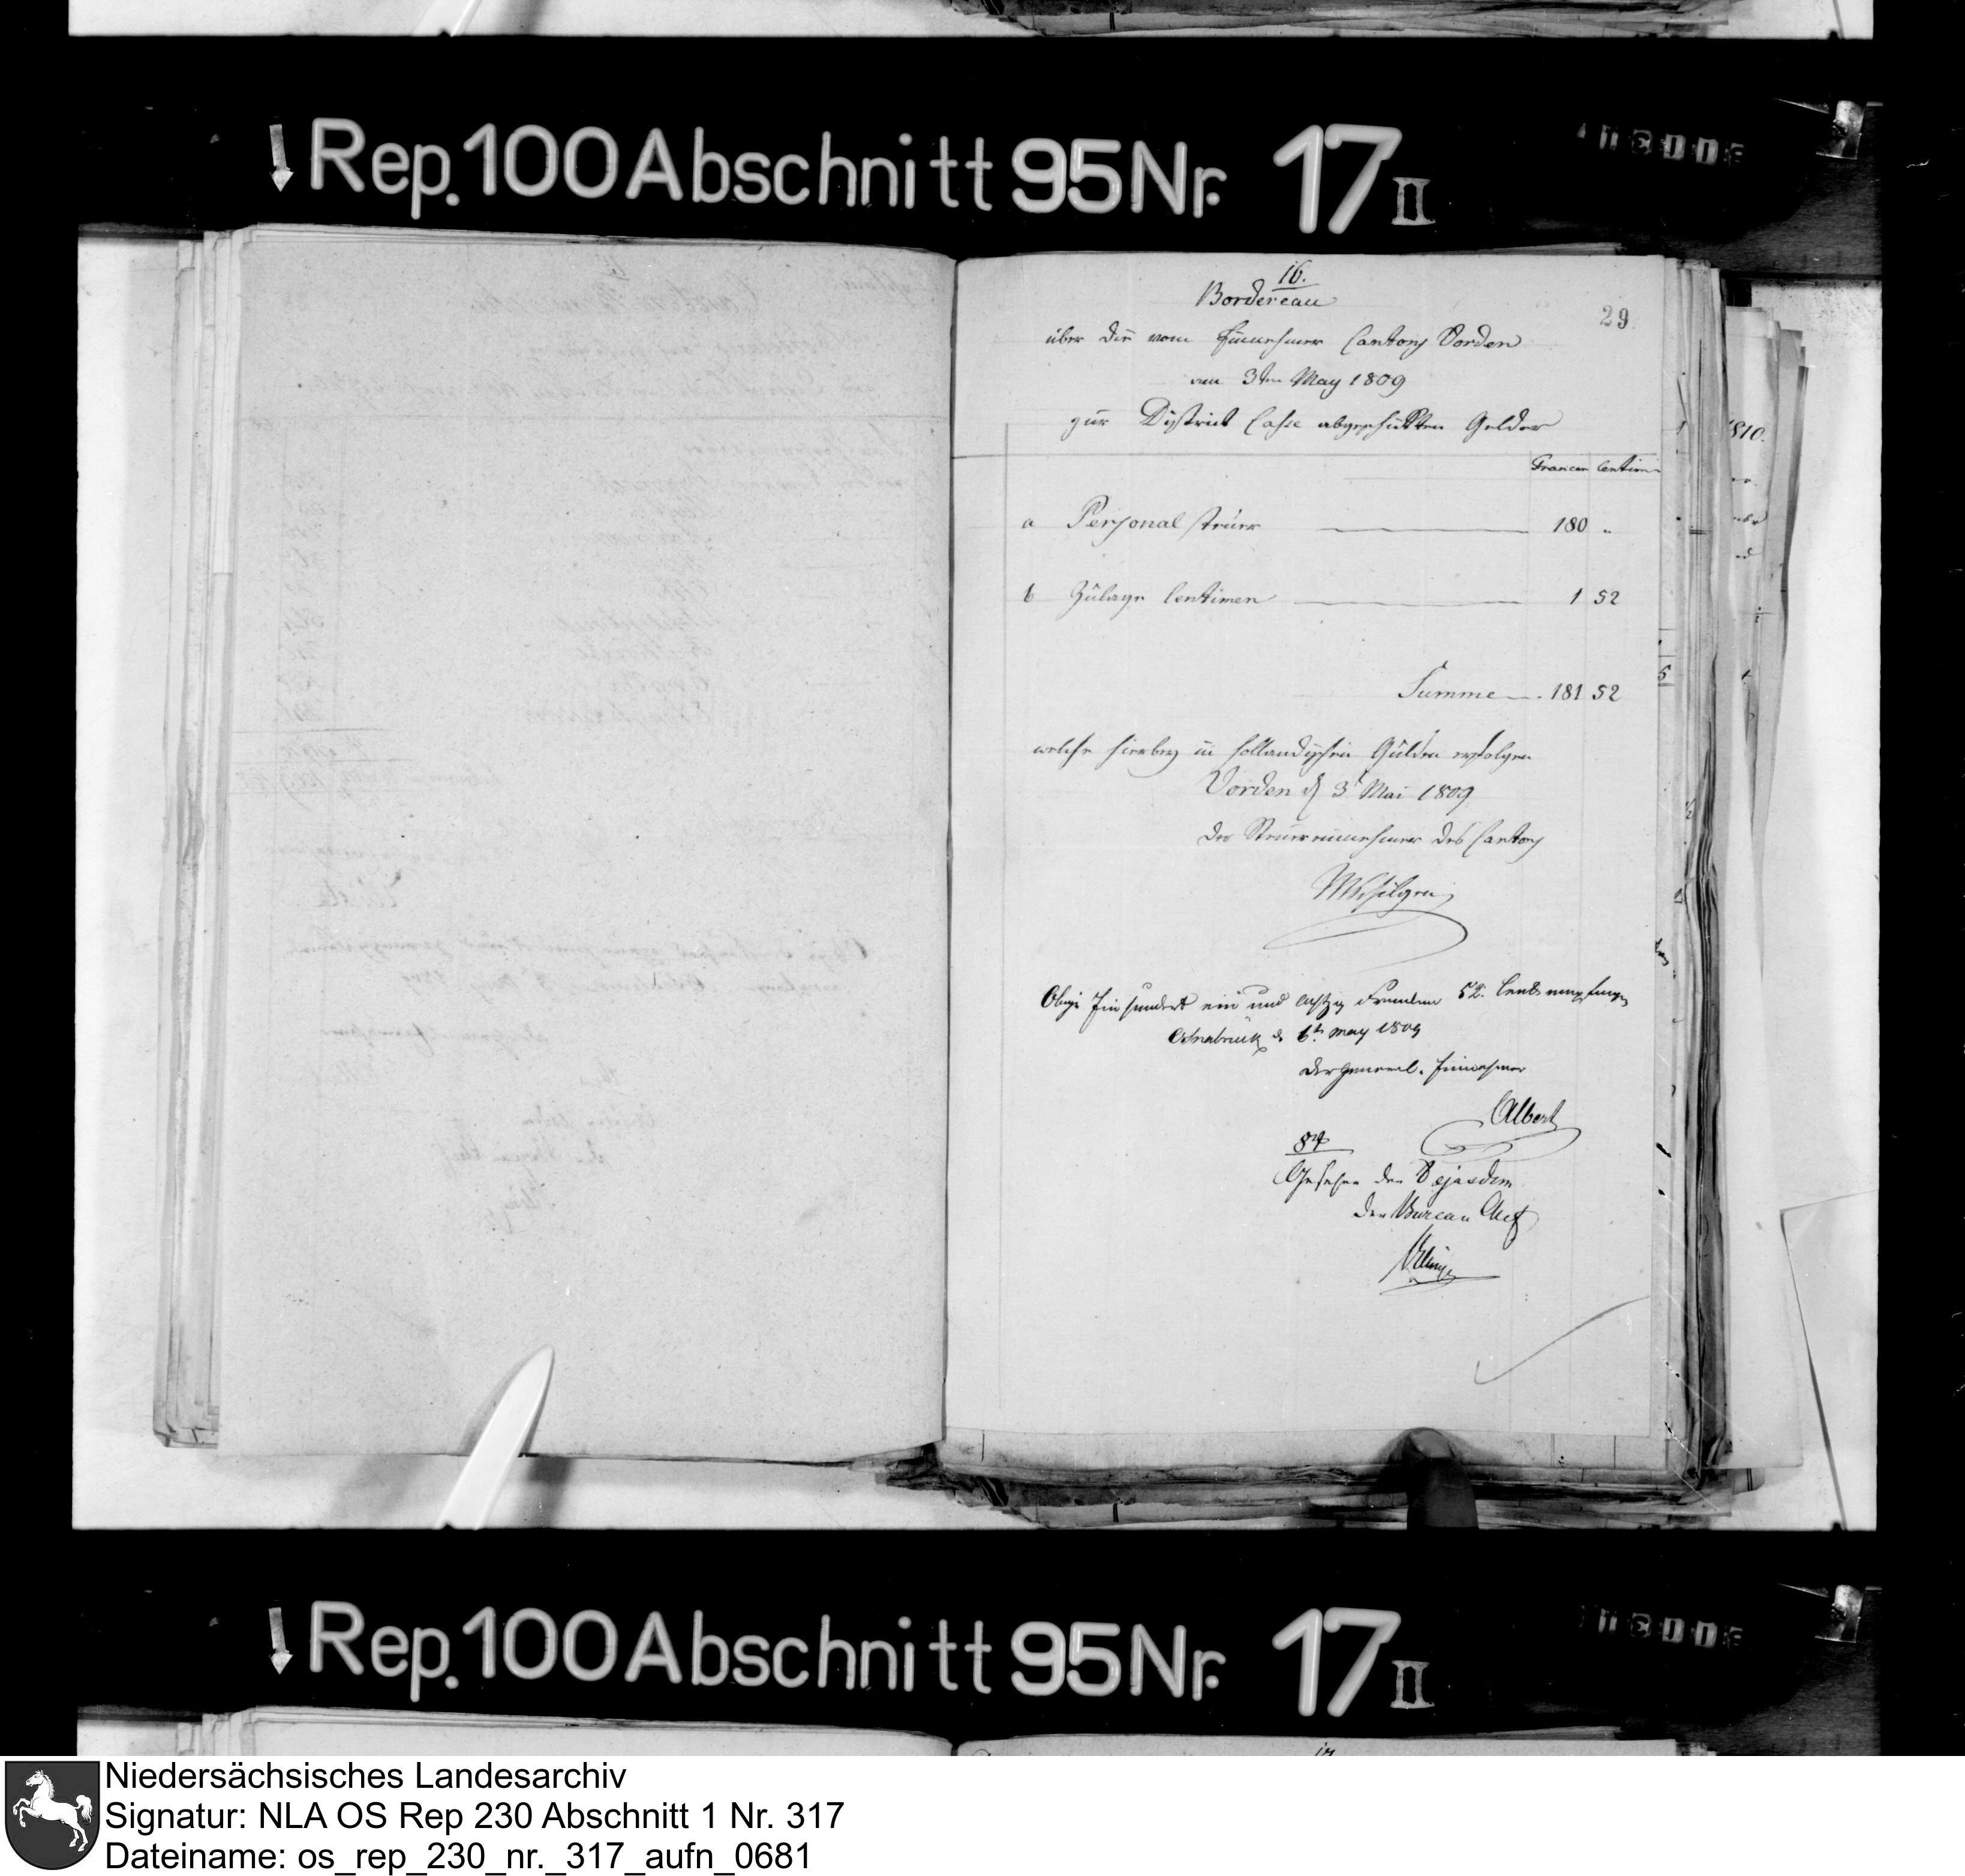 Rep. 100 Abschnitt 95 Nr. 17 II
16.
Bordereau
29
über die vom Einnehmer Cantons Vörden
am 3ten May 1809
zur District Casse abgeschickten Gelder
Francen Centimen
a Personalsteuer 180 "
b Zulage Centimen 1 52
Summe 181 52
welche hierbey in holländischen Gulden erfolgen
Vörden d 3t Mai 1809
Der Steuereinnehmer des Cantons
Obige Einhundert ein und achtzig Franken 52. Cent. empfangen
Osnabrück d. 6t May 1809
Der General-Einnehmer
Albert
Gesehen
der Bureau Chef
1810.
Rep. 100 Abschnitt 95 Nr. 17 II
Niedersächsisches Landesarchiv
Signatur: NLA OS Rep 230 Abschnitt 1 Nr. 317
Dateiname: os_rep_230_nr._317_aufn_0681